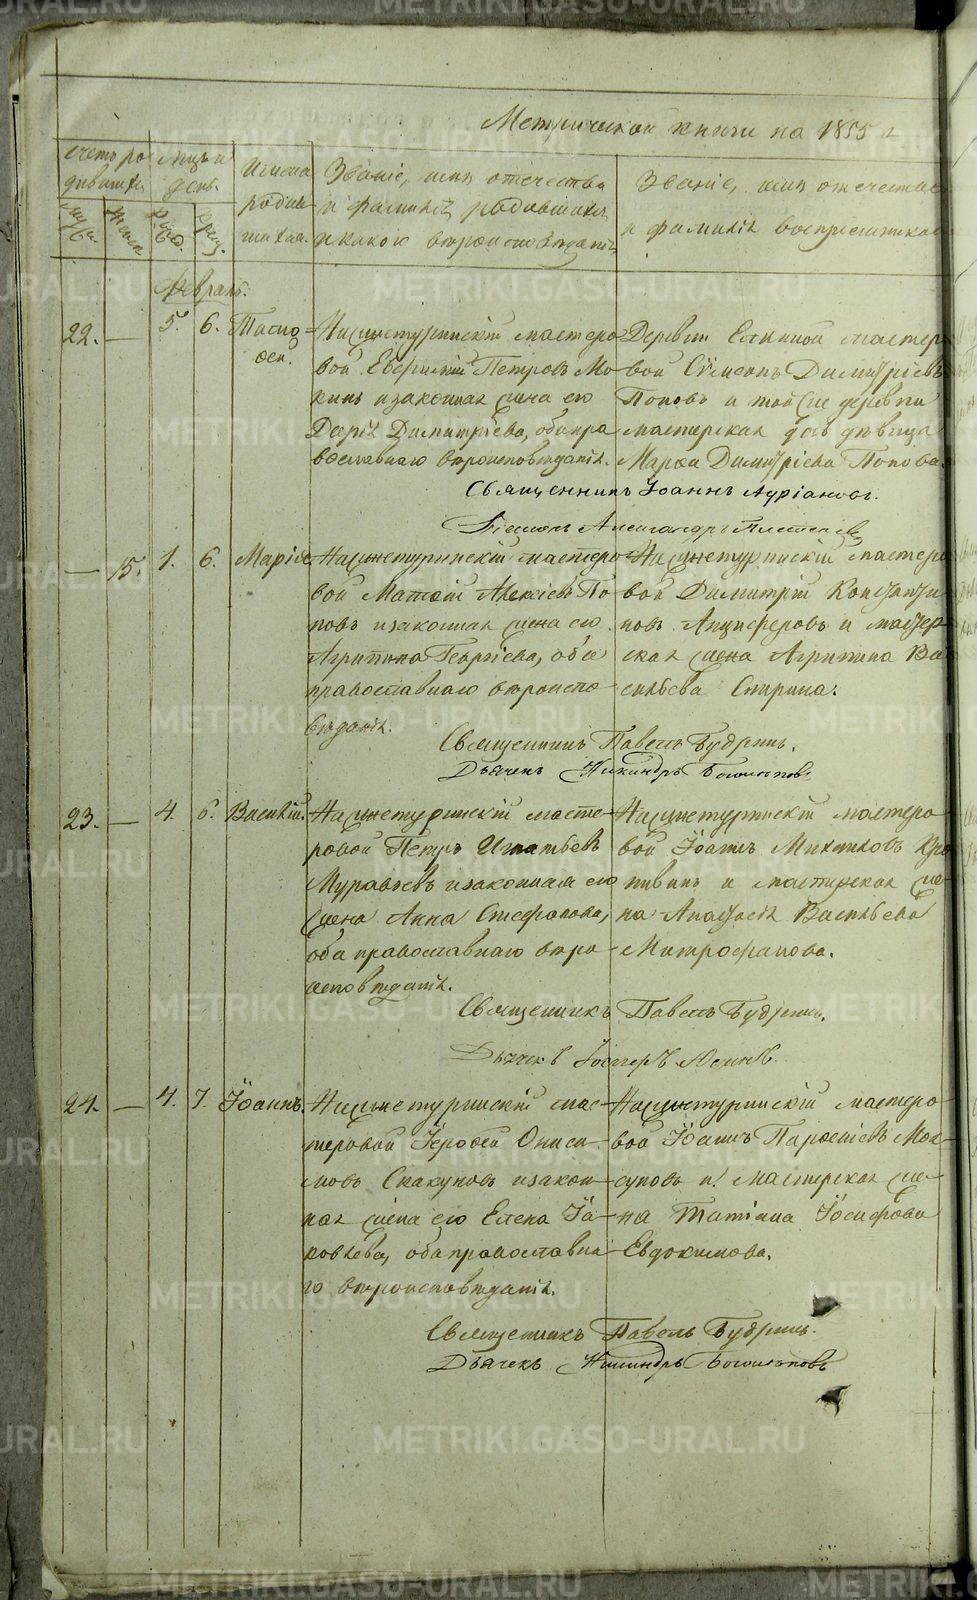 METRIKI.GASO-URAL.RU
Метрической книги на 1855 г
Счетъ ро
дившихся
Муж.
Жен.
Мѣсяцъ и
день.
Рожд.
Крещ.
Имена
родив
шихся.
Званіе, имя отчество
и фамилія родителей,
и какого вѣроисповѣданія
Званіе, имя отчество
и фамилія воспріемниковъ
Февраль.
22. — 5. 6.
Нижнетуринскій мастеро
вой Петровъ Мо
кинъ и законная жена его
Дарія Димитріева, оба пра
вославнаго вѣроисповѣданія.
Деревни Елкиной мастеро
вой Сѵмеонъ Димитріевъ
Поповъ и той же деревни
мастерская дочь дѣвица
Марѳа Димитріева Попова.
Священникъ Іоаннъ Адріановъ.
Александръ
— 15. 1. 6. Марія
Нижнетуринскій мастеро
вой Матѳій Алексіевъ По
повъ и законная жена его
Агрипина Георгіева, оба
православнаго вѣроиспо
вѣданія.
Нижнетуринскій мастеро
вой Димитрій Константи
новъ Анциферовъ и мастер
ская жена Агрипина Ва
сильева Спирина.
Священникъ Павелъ Будринъ.
Дьячекъ Никандръ Богомоловъ.
23. — 4. 6. Василій.
Нижнетуринскій масте
ровой Петръ Игнатьевъ
Муравьевъ и законная его
жена Анна Стефанова,
оба православнаго вѣро
исповѣданія.
Нижнетуринскій мастеро
вой Іоаннъ Михаиловъ
и мастерская же
на Анастасія Васильева
Митрофанова.
Священникъ Павелъ Будринъ.
Дьячекъ
24. — 4. 7. Іоаннъ.
Нижнетуринскій мас
теровой ІероѳейОниси
мовъ Скакуновъ и закон
ная жена его Елена Іа
ковлева, оба православна
го вѣроисповѣданія.
Нижнетуринскій мастеро
вой Іоаннъ Парѳеніевъ Мок
суновъ и мастерская же
на Татіана Іосифова
Евдокимова.
Священникъ Павелъ Будринъ.
Дьячекъ Никандръ Богомоловъ